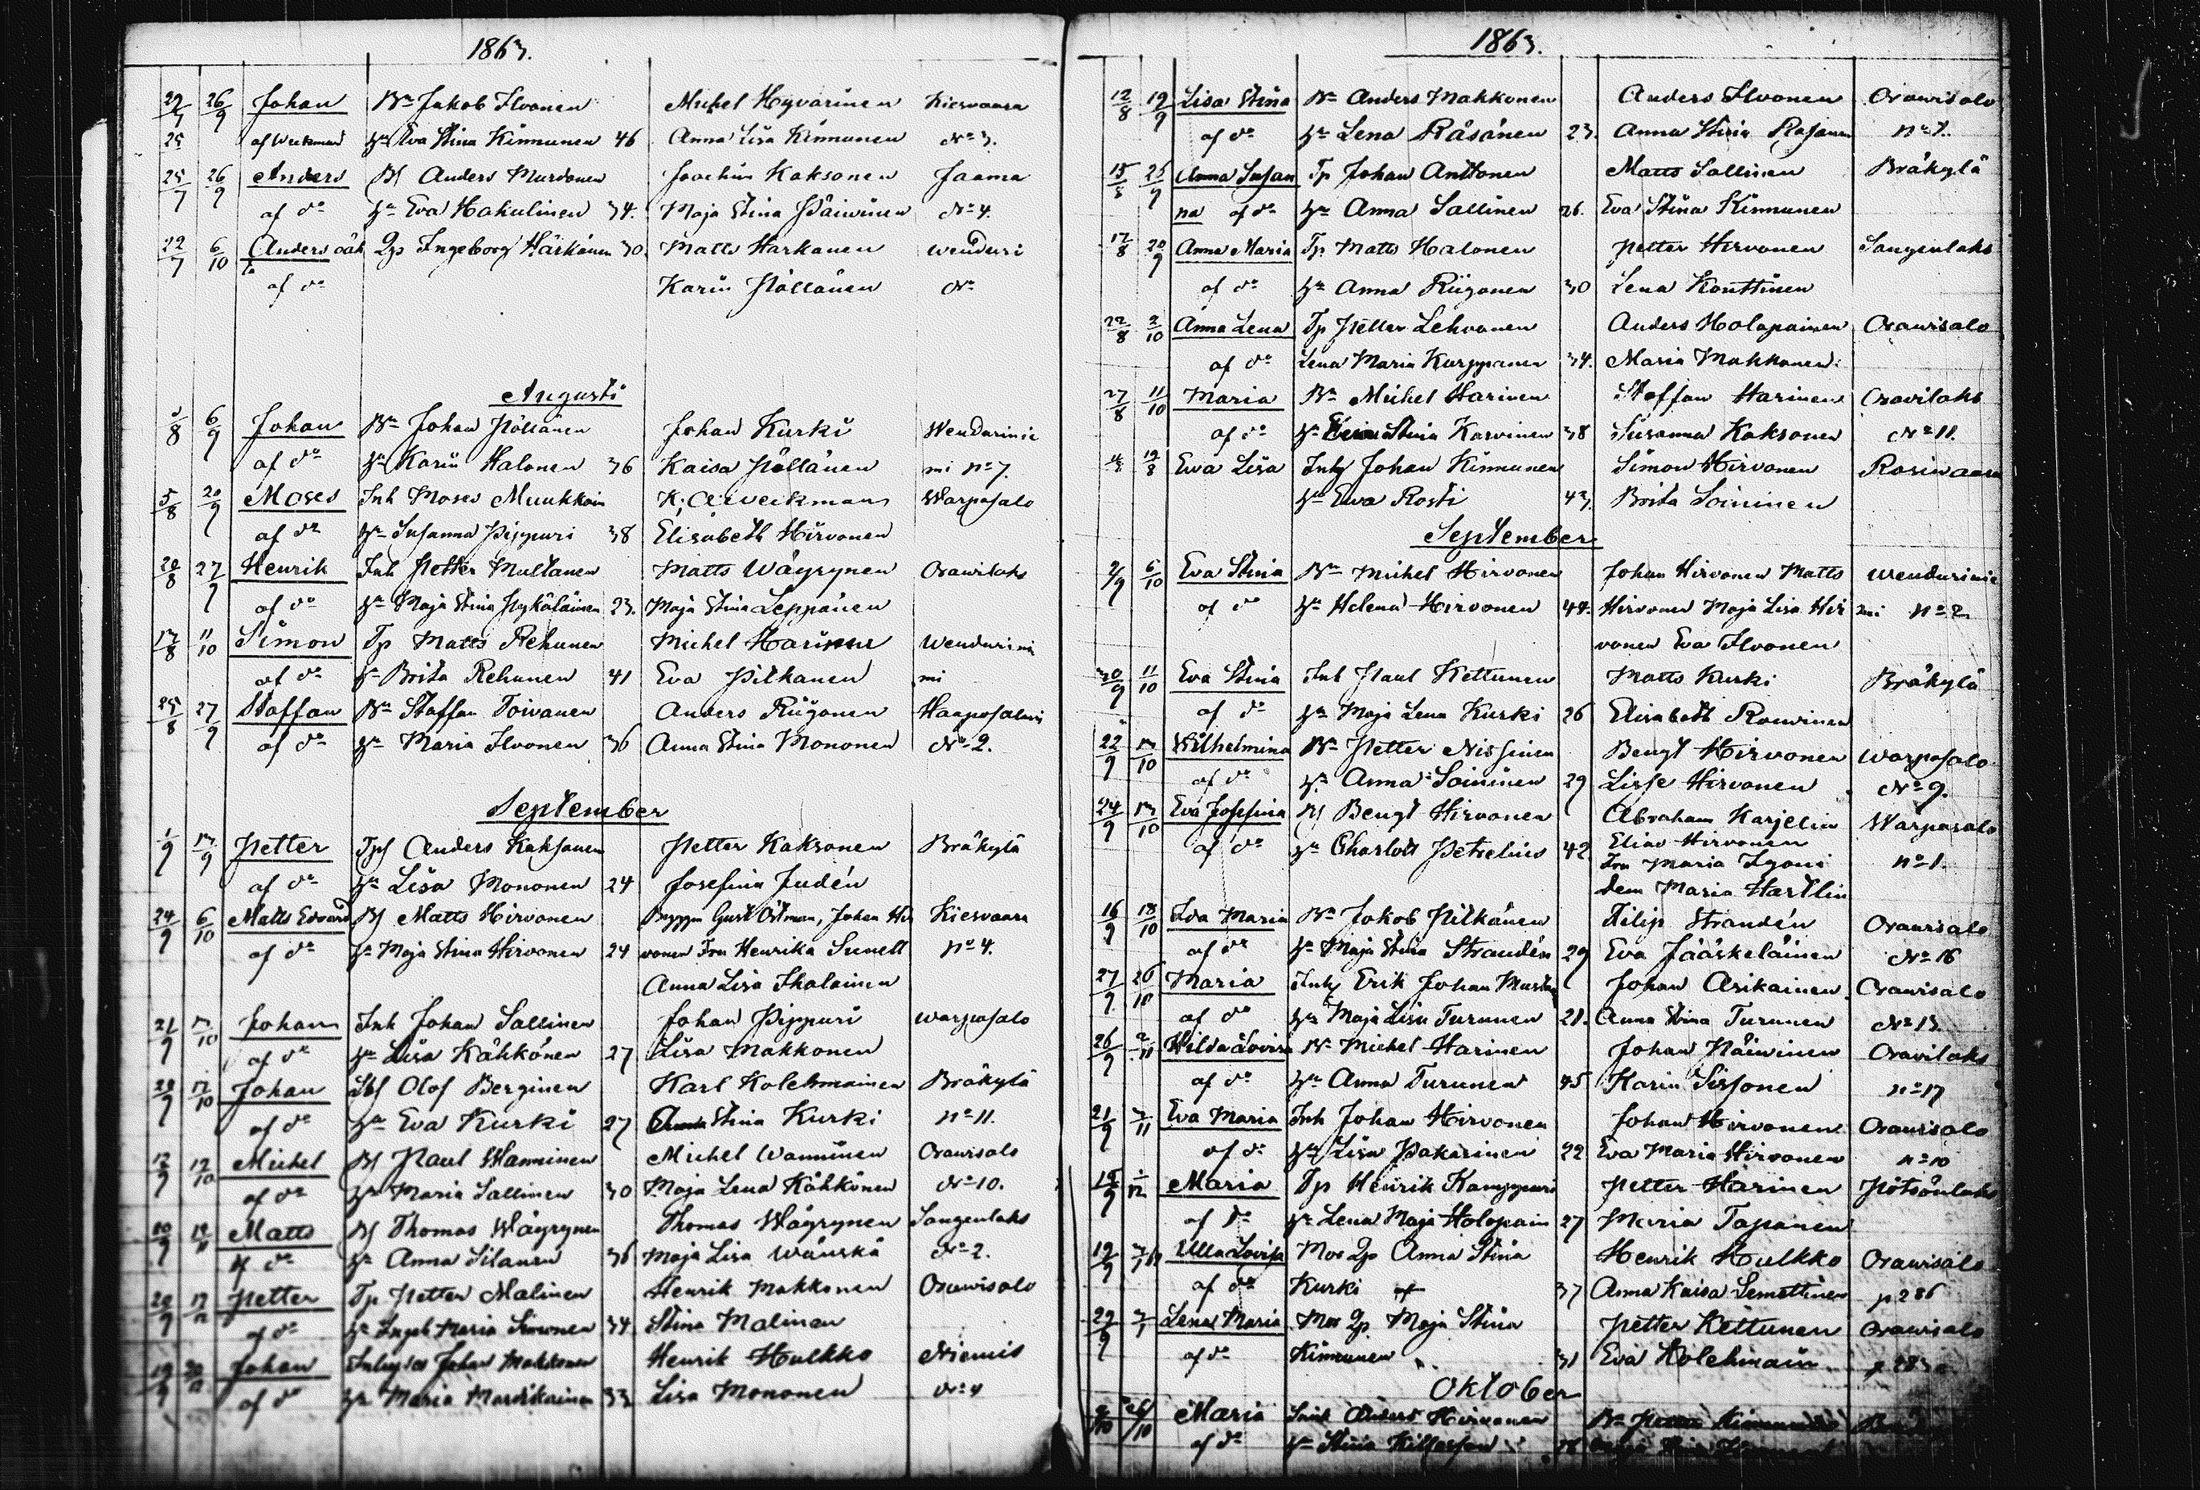 1863.
29/7 26/9 Johan Bn Jakob Ilvonen Michel Hyvärinen Kiesvaara
25 af Weckman Hu Eva Stina Kinnunen 46 Anna Lisa Kinnunen No 3.
25/7 26/9 Anders Bs Anders Murdonen Joachim Kaksonen Jaama
af do Hu Eva Hakulinen 34. Maja Stina Päivinen No 4.
22/7 6/10 Anders oäkta Qp Ingeborg Härkönen 30. Matts Harkanen Wenduri
af do Karin Pöllänen No
Augusti
3/8 6/9 Johan Bn Johan Pöllänen Johan Kurki Wendurinie
af do Hu Karin Halonen 36 Kaisa Pöllänen mi No 7.
5/8 20/9 Moses Inh Moses Muukkoin K. A. Weckman Warpasalo
af do Hu Susanna Pippuri 38 Elisabeth Hirvonen
20/8 27/9 Henrik Inh Petter Multanen Matts Wäyrynen Orawilaks
af do Hu Maja Stina Pykäläinen 23. Maja Stina Leppänen
17/8 11/10 Simon Tp Matts Rehunen Michel Harinen Wendurini
af do Hu Brita Rehunen 41 Eva Pitkanen mi
25/8 27/9 Staffan Bn Staffan Toivanen Anders Riigonen Haaposalmi
af do Hu Maria Ilvonen 36 Anna Stina Mononen No 2.
September
1/9 13/9 Petter Tps Anders Kaksonen Petter Kaksonen Bräkylä
af do Hu Lisa Mononen 24 Josefina Judén
24/9 6/10 Matts Edvard Bs Matts Hirvonen Gust Östman, Johan Hir Kiesvaara
af do Hu Maja Stina Hirvonen 24 vonen Fru Henrika Sunell No 4.
Anna Lisa Ikalainen
21/9 13/10 Johan Inh Johan Sallinen Johan Pippuri Warpasalo
af do Hu Lisa Kähkönen 27 Lisa Makkonen
20/9 12/10 Johan Olof Berginen Karl Kolehmainen Bräkylä
af do Hu Eva Kurki 27 Stina Kurki No 11.
12/9 12/10 Michel Bs Paul Wanninen Michel Wanninen Orawisalo
af do Hu Maria Sallinen 30 Maja Lena Kähkönen No 10.
20/9 Matts Bs Thomas Wäyrynen Thomas Wäyrynen Sangenlaks
af do Hu Anna Silanen 36 Maja Lisa Wänskä No 2.
20/9 Petter Tp Petter Malinen Henrik Makkonen Orawisalo
af do Hu Ingeb Maria Simonen 34 Stina Malinen
19/9 Johan Johan Makkonen Henrik Hulkko Niemis
af do Hu Maria Martikainen 33 Lisa Mononen No 4
1863.
12/8 19/9 Lisa Stina Bn Anders Makkonen Anders Ilvonen Orawisalo
af do Hu Lena Räsänen 23. Anna Stina Rasanen No 7.
15/8 25/9 Anna Susan Tp Johan Anttonen Matts Sallinen Bräkylä
na af do Hu Anna Sallinen 26. Eva Stina Kinnunen
17/8 20/9 Anna Maria Tp Matts Halonen Petter Hirvonen Sangenlaks
af do Hu Anna Riigonen 30 Lena Konttinen
22/8 2/10 Anna Lena Tp Petter Lehvonen Anders Holopainen Orawisalo
af do Lena Maria Kurppanen 34. Maria Makkonen.
27/8 11/10 Maria Bn Michel Harinen Staffan Harinen Oravilaks
af do Hu Stina Karvinen 38 Susanna Kaksonen No 11.
12/8 Ewa Lisa Inhy Johan Kinnunen Simon Hirvonen Rasiwaara
Hu Ewa Rosti 43. Brita Soininen
September
2/9 6/10 Eva Stina Bn Michel Hirvonen Johan Hirvonen Matts Wendurinie
af do Hu Helena Hirvonen 44. Hirvonen Maja Lisa Hir mi No 2
vonen Eva Ilvonen
30/9 11/10 Eva Stina Inh Paul Kettunen Matts Kurki Bräkylä
af do Hu Maja Lena Kurki 26 Elisabeth Rouvinen
22/9 13/10 Wilhelmina Bn Petter Nissinen Bengt Hirvonen Warpasalo
af do Hu Anna Soininen 29 Lisse Hirvonen No 9.
24/9 13/10 Eva Josefina Bs Bengt Hirvonen Abraham Karjelin Warpasalo
af do Hu Charlott Petrelius 42 Elias Hirvonen No 1.
Fru Maria Lyoni
Dem Maria Hartlin
16/9 18/10 Ida Maria Bn Jakob Pitkänen Filip Strandén Orawisalo
af do Hu Maja Stina Strandén 29 Eva Jääskeläinen No 16
27/9 26/10 Maria Inhy Erik Johan Johan Asikainen Orawisalo
af do Hu Maja Lisa Turunen 28. Anna Stina Turunen No 13.
26/9 2/11 Hilda Lovisa Bn Michel Harinen Johan Päivinen Oravilaks
af do Hu Anna Turunen 45 Karin Sissonen No 17
21/9 7/11 Eva Maria Inh Johan Hirvonen Johan Hirvonen Orawisalo
af do Hu Lisa Pakarinen 22 Eva Maria Hirvonen No 10
15/9 1/12 Maria Tp Henrik Kamppuri Petter Harinen Pötsönlaks
af do Hu Lena Maja Holopain 27 Maria Tapanen
19/9 Ulla Lovisa Mor Qp Anna Stina Henrik Hulkko Orawisalo
af do Kurki 37 Anna Kaisa Lemettinen p 286
29/9 Lena Maria Mor Qp Maja Stina Petter Kettunen Orawisalo
af do Kinnunen 31 Eva Kolehmain
Oktober
26/10 Maria Anders Hirvonen
af do Hu Stina